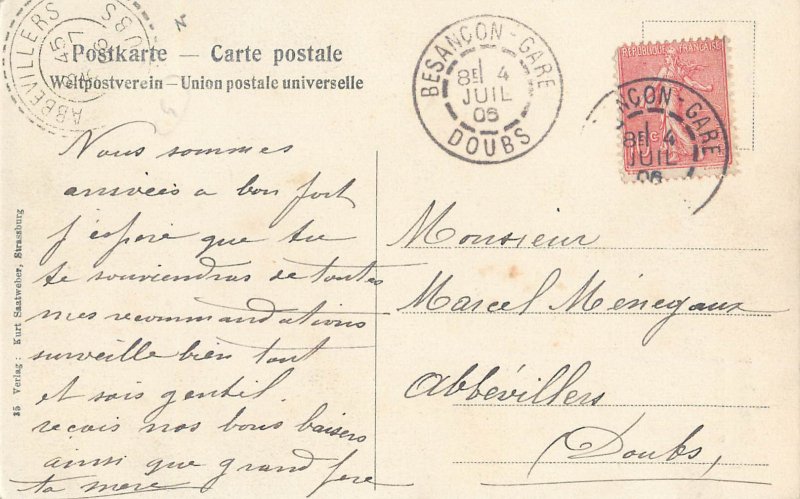 ABBEVILLERS
DOUBS
Postkarte — Carte postale
Weltpostverein – Union postale universelle
BESANÇON-GARE
8E 4
JUIL
06
DOUBS
REPUBLIQUE FRANÇAISE
BESANÇON-GARE
8E 4
JUIL
06
Nous sommes
arrivées a bon port
j'espère que tu
te souviendras de toutes
mes recommandations
surveille bien tout
et sois gentil.
reçois nos bons baisers
ainsi que grand père
ta mere
Monsieur
Marcel Ménegaux
Abbévillers
(Doubs)
35 Verlag : Kurt Saatweber, Strassburg